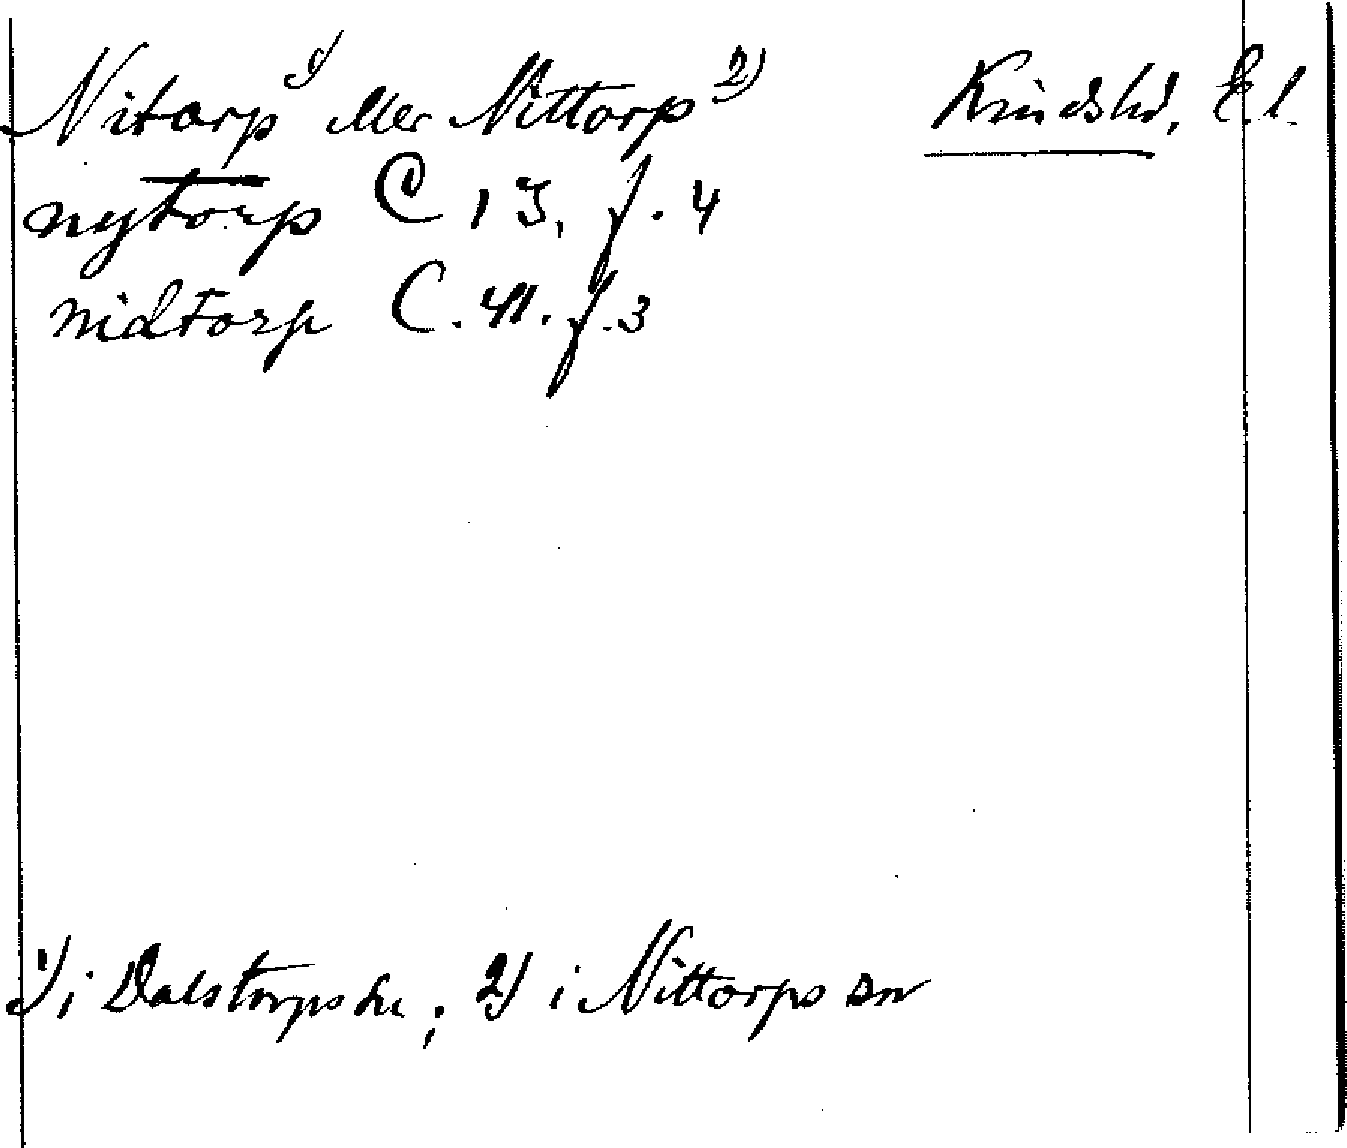 Nitorp 1) eller Nittorp 2) Kindshd, Äl.
nytorp C 13, f. 4
nidtorp C. 41. f. 3
1) i Dalstorps sn; 2) i Nittorps sn